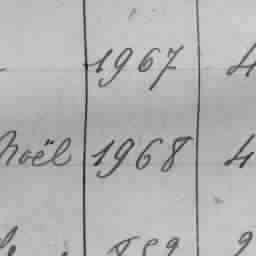 1967 4
Noël 1968 4